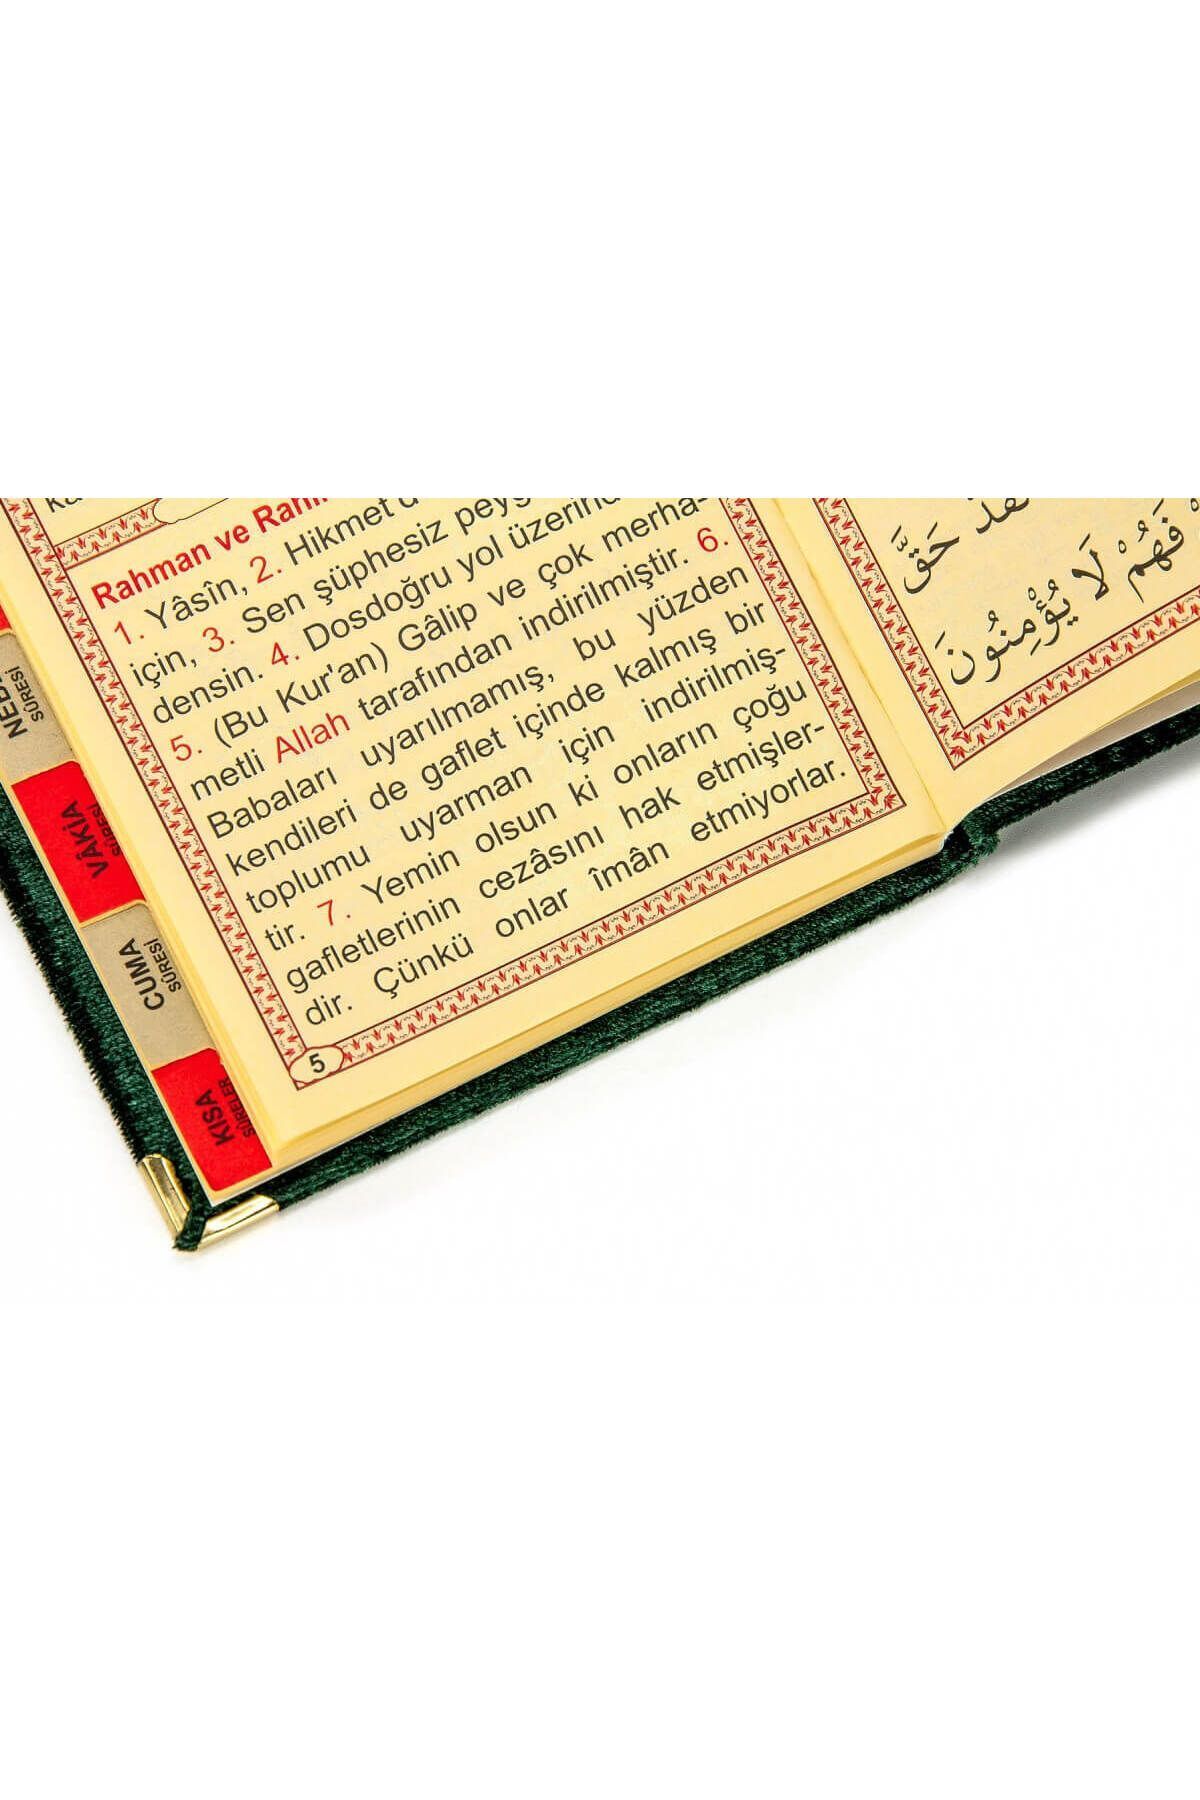 Rahman ve
1. Yâsîn, 2. Hikmet
için, 3. Sen şüphesiz
densin. 4. Dosdoğru yol
5. (Bu Kur'an) Gâlip ve çok merha-
metli Allah tarafından indirilmiştir. 6.
Babaları uyarılmamış, bu yüzden
kendileri de gaflet içinde kalmış bir
toplumu uyarman için indirilmiş-
tir. 7. Yemin olsun ki onların çoğu
gafletlerinin cezâsını hak etmişler-
dir. Çünkü onlar îmân etmiyorlar.
5
SÛRESİ
VÂKIA
SÛRESİ
CUMA
SÛRESİ
KISA
SÛRELER
حَقَّ
فَهُمْ لَا يُؤْمِنُونَ